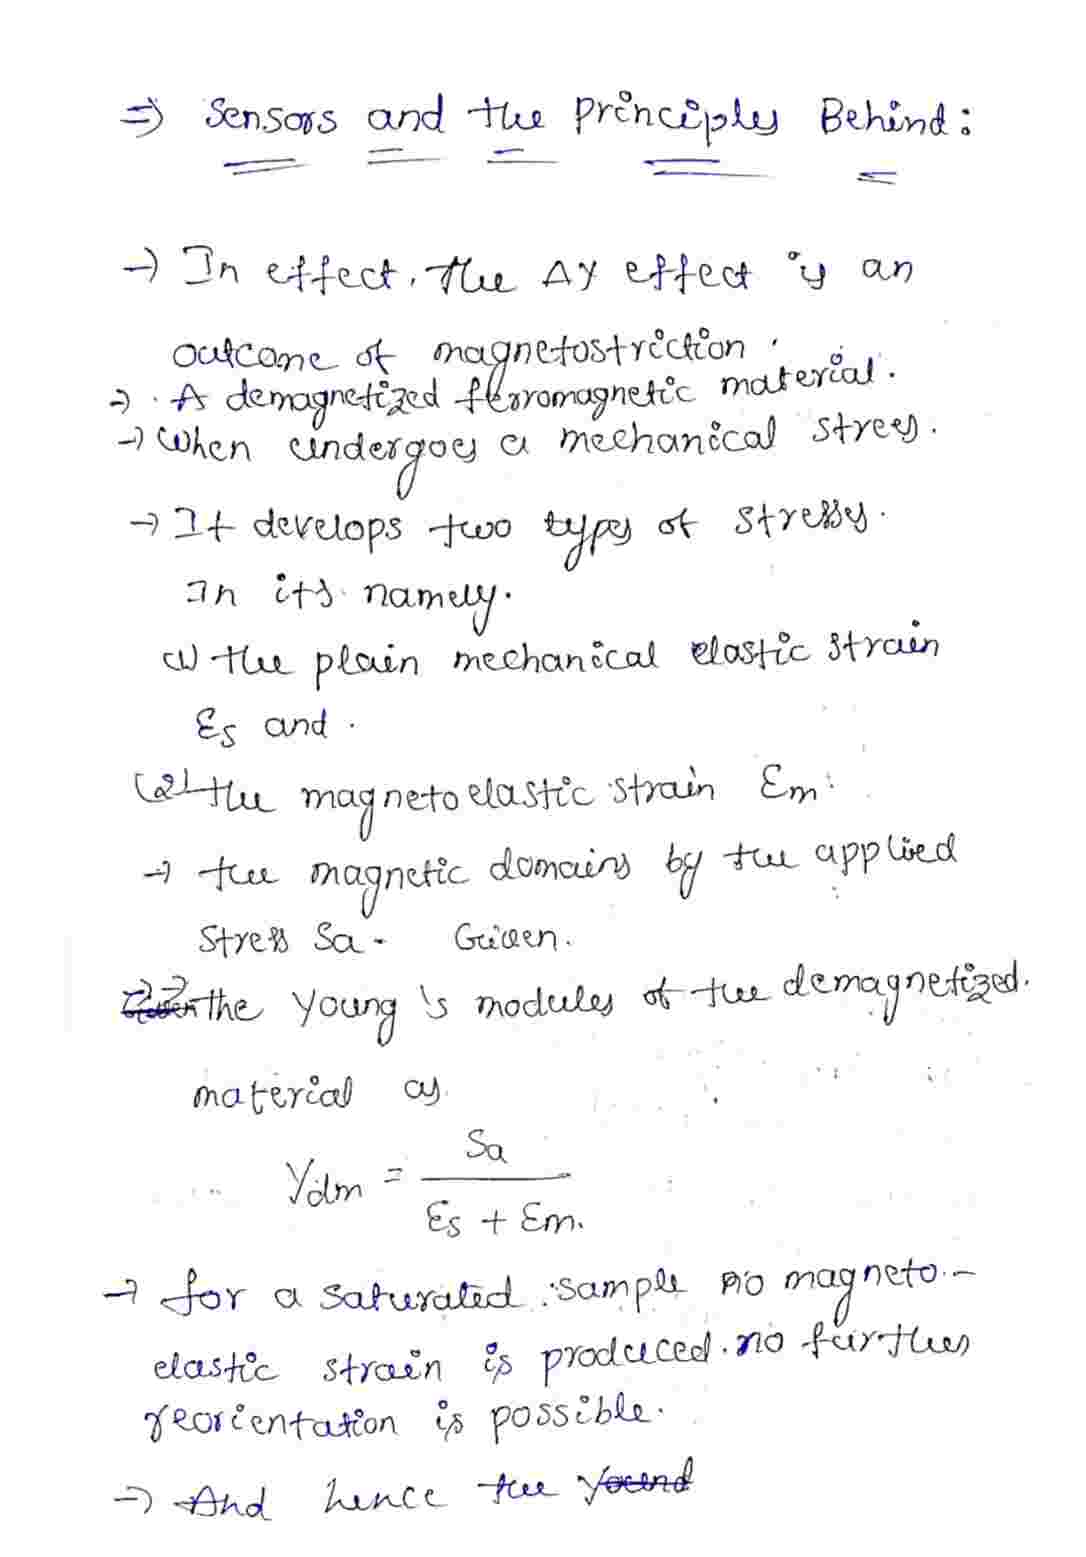 ⇒ Sensors and the Principles Behind:
→ In effect, the ΔY effect is an
outcome of magnetostriction.
→ A demagnetized ferromagnetic material.
→ When undergoes a mechanical stress.
→ It develops two types of stresses.
In its namely.
(1) the plain mechanical elastic strain
Es and.
(2) the magneto elastic strain Em.
→ the magnetic domains by the applied
Stress Sa. Given.
the young's modules of the demagnetized.
material as
Ydm = Sa / Es + Em.
→ for a saturated sample no magneto-
elastic strain is produced. no further
reorientation is possible.
→ And hence the